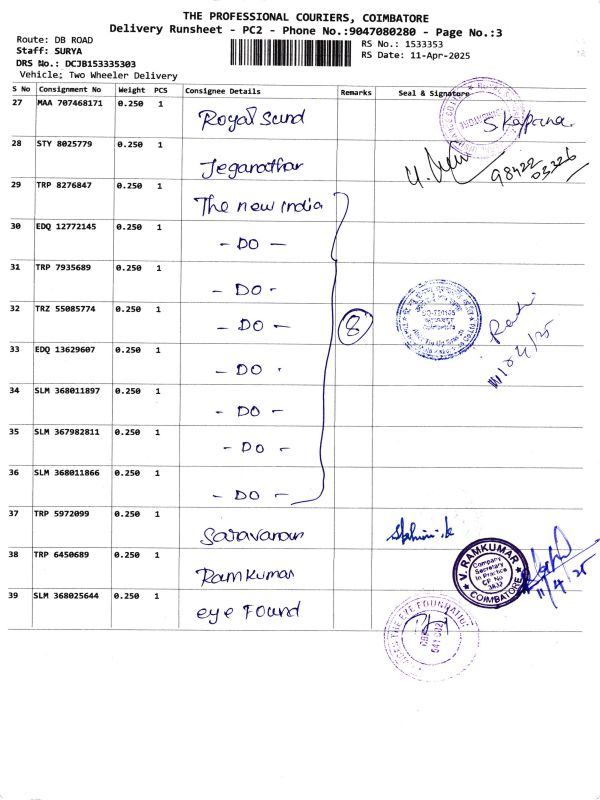 THE PROFESSIONAL COURIERS, COIMBATORE
Delivery Runsheet - PC2 - Phone No.:9047080280 - Page No.:3
Route: DB ROAD
Staff: SURYA
DRS No.: DCJB153335303
Vehicle; Two Wheeler Delivery
RS No.: 1533353
RS Date: 11-Apr-2025
S No Consignment No Weight PCS Consignee Details Remarks Seal & Signature
27 MAA 707468171 0.250 1 Royal Sund
28 STY 8025779 0.250 1 Jeganathan 98422
29 TRP 8276847 0.250 1 The new india
30 EDQ 12772145 0.250 1 - DO -
31 TRP 7935689 0.250 1 - DO -
32 TRZ 55085774 0.250 1 - DO - 8
33 EDQ 13629607 0.250 1 - DO -
11/04/25
34 SLM 368011897 0.250 1 - DO -
35 SLM 367982811 0.250 1 - DO -
36 SLM 368011866 0.250 1 - DO -
37 TRP 5972099 0.250 1 Saravanan
38 TRP 6450689 0.250 1 Ramkumar
V. RAMKUMAR
Company
Secretary
In Practice
CP No
COIMBATORE
11/4/25
39 SLM 368025644 0.250 1 eye Found
THE EYE FOUNDATION
641 002